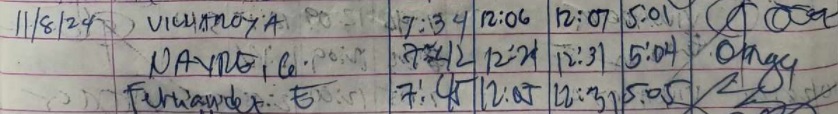 11/8/24 VILLANOZA 7:34 12:06 12:07 5:01
NAYRE, C. 7:42 12:21 12:31 5:04
Fernandez. E 7:45 12:05 12:31 5:05